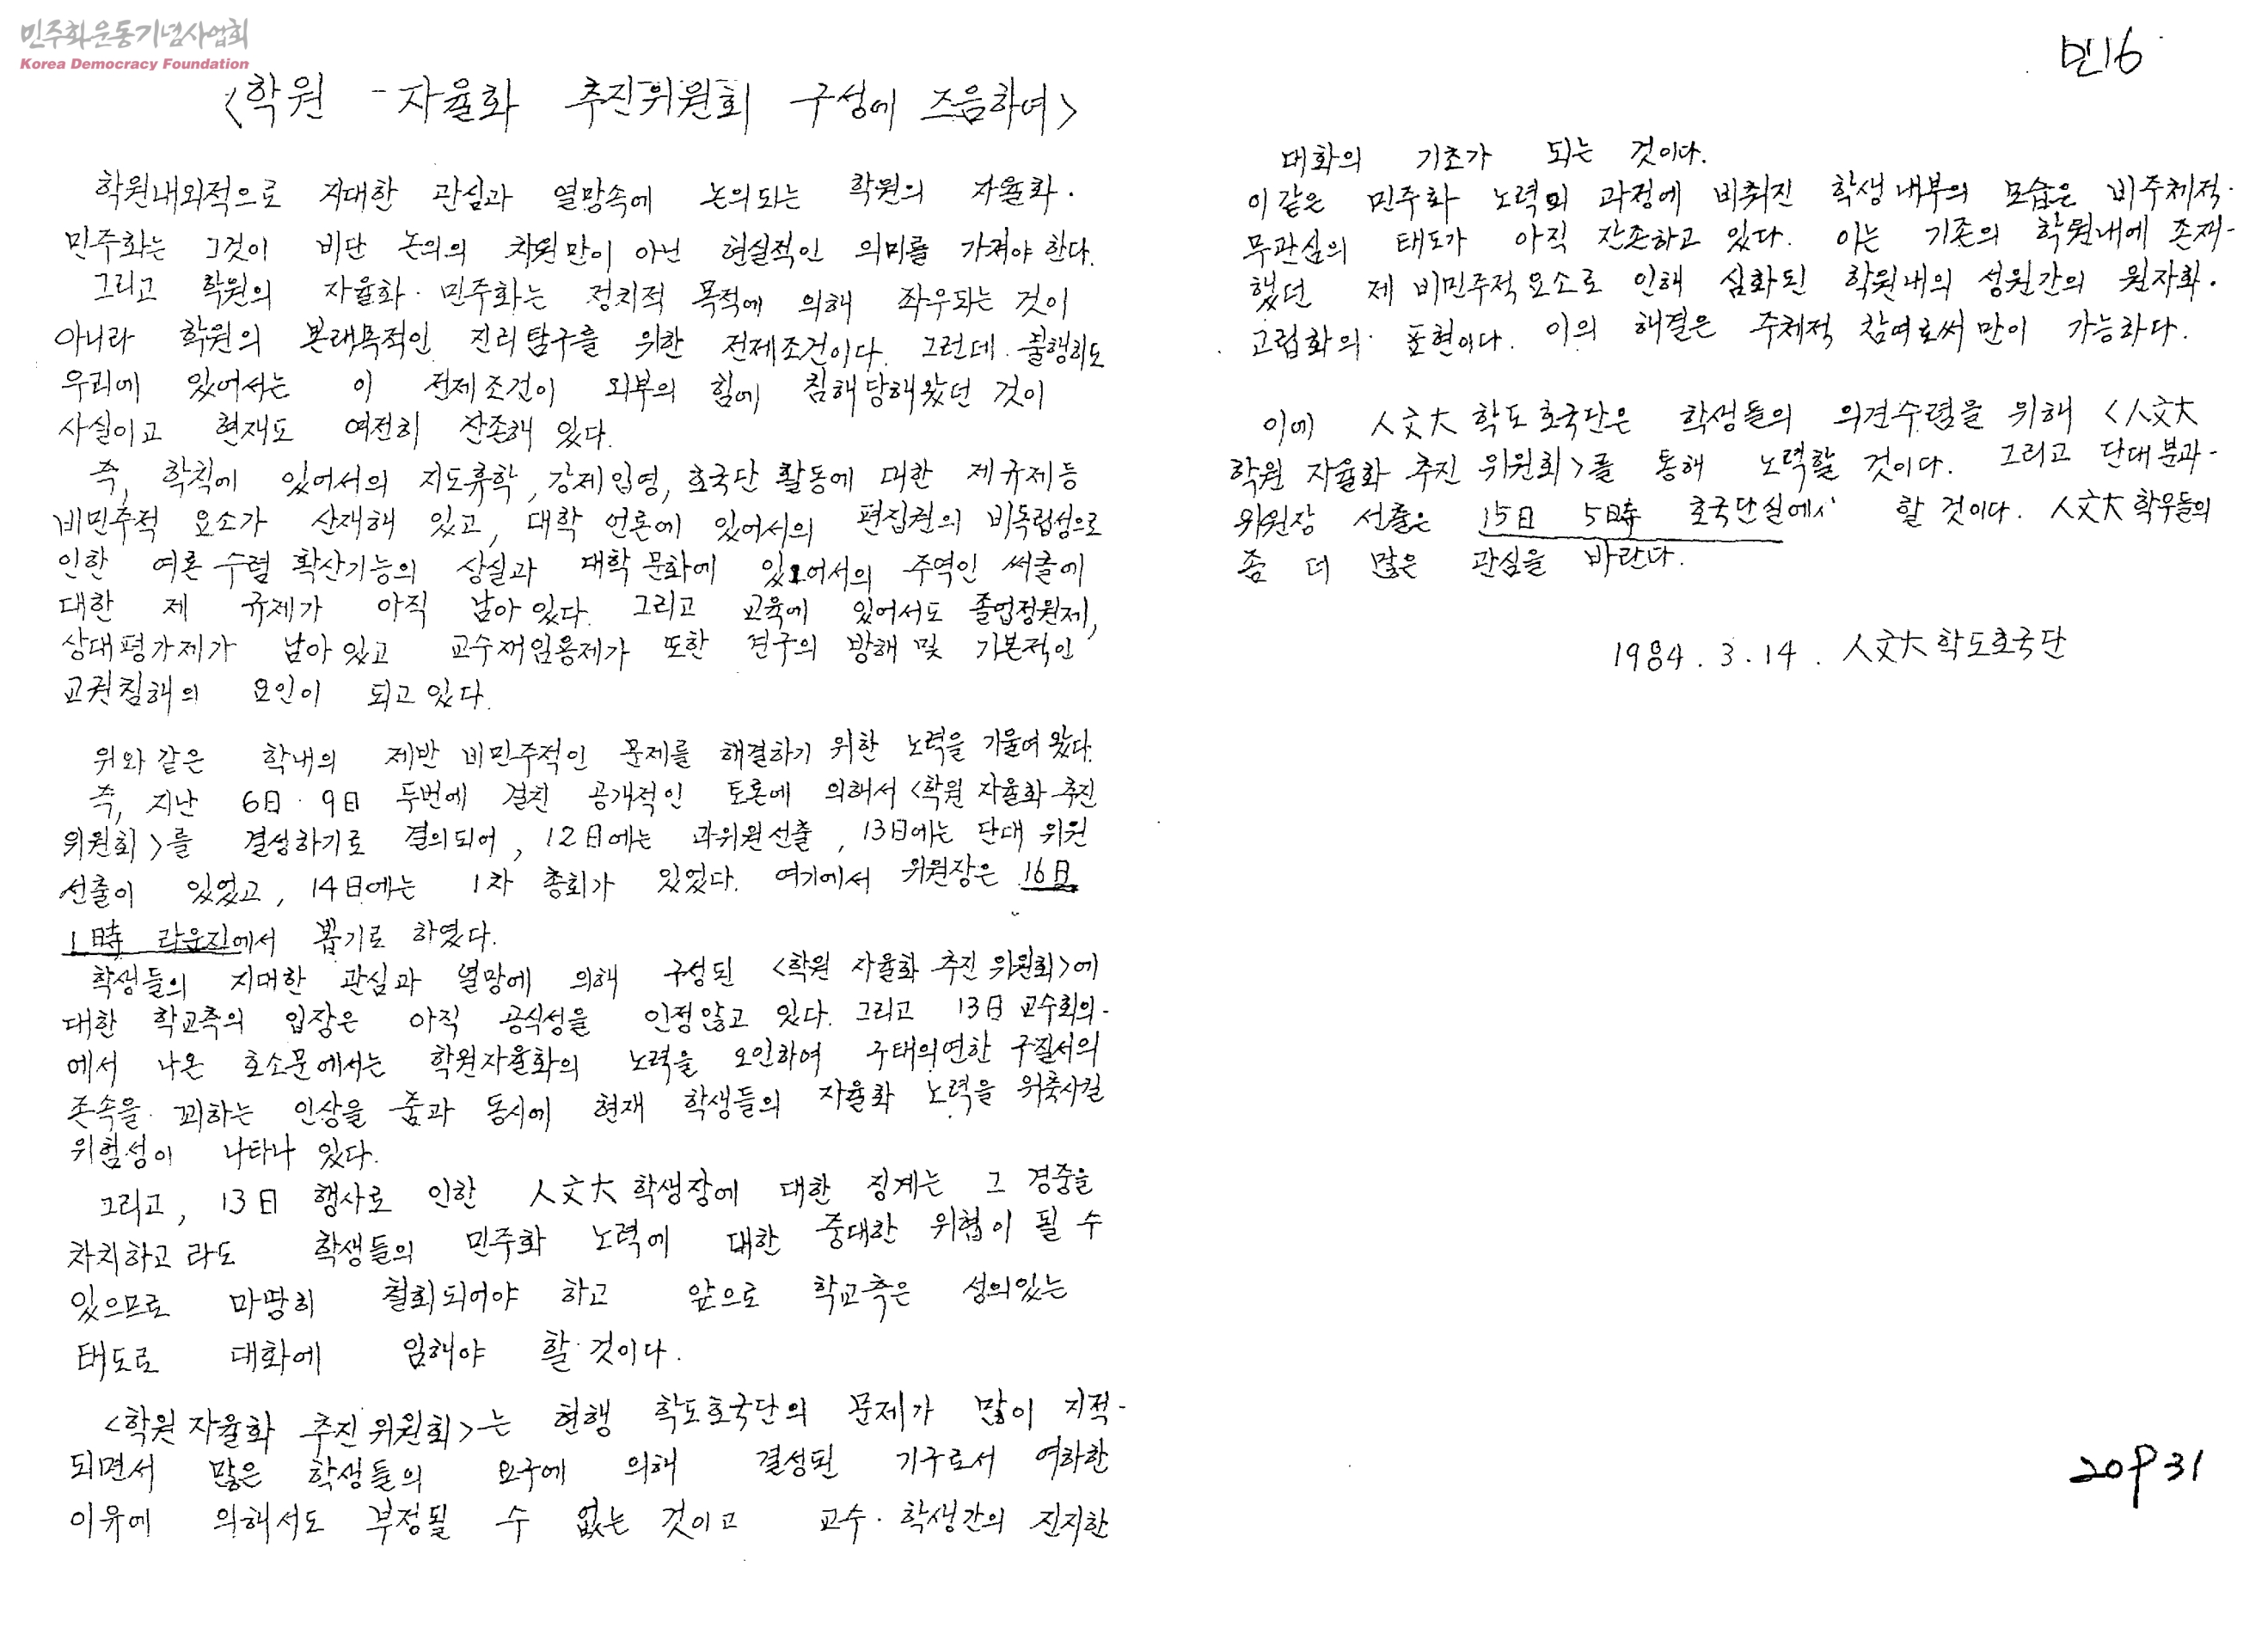 민주화운동기념사업회
Korea Democracy Foundation
민16
<학원 - 자율화 추진위원회 구성에 즈음하여>
학원내외적으로 지대한 관심과 열망속에 논의되는 학원의 자율화·
민주화는 그것이 비단 논의의 차원만이 아닌 현실적인 의미를 가져야 한다.
그리고 학원의 자율화·민주화는 정치적 목적에 의해 좌우되는 것이
아니라 학원의 본래목적인 진리탐구를 위한 전제조건이다. 그런데 불행히도
우리에 있어서는 이 전제조건이 외부의 힘에 침해당해왔던 것이
사실이고 현재도 여전히 잔존해 있다.
즉, 학칙에 있어서의 지도휴학, 강제입영, 호국단 활동에 대한 제규제등
비민주적 요소가 산재해 있고, 대학 언론에 있어서의 편집권의 비독립성으로
인한 여론 수렴 확산기능의 상실과 대학 문화에 있어서의 주역인 써클에
대한 제 규제가 아직 남아 있다. 그리고 교육에 있어서도 졸업정원제,
상대평가제가 남아 있고 교수재임용제가 또한 연구의 방해 및 기본적인
교권침해의 요인이 되고 있다.
위와 같은 학내의 제반 비민주적인 문제를 해결하기 위한 노력을 기울여 왔다.
즉, 지난 6日·9日 두번에 걸친 공개적인 토론에 의해서 <학원 자율화 추진
위원회>를 결성하기로 결의되어, 12日에는 과위원선출, 13日에는 단대 위원
선출이 있었고, 14日에는 1차 총회가 있었다. 여기에서 위원장은 16日
1時 라운지에서 뽑기로 하였다.
학생들의 지대한 관심과 열망에 의해 구성된 <학원 자율화 추진 위원회>에
대한 학교측의 입장은 아직 공식성을 인정않고 있다. 그리고 13日 교수회의-
에서 나온 호소문에서는 학원자율화의 노력을 오인하여 구태의연한 구질서의
존속을 꾀하는 인상을 줌과 동시에 현재 학생들의 자율화 노력을 위축시킬
위험성이 나타나 있다.
그리고, 13日 행사로 인한 人文大 학생장에 대한 징계는 그 경중을
차치하고라도 학생들의 민주화 노력에 대한 중대한 위협이 될 수
있으므로 마땅히 철회되어야 하고 앞으로 학교측은 성의있는
태도로 대화에 임해야 할 것이다.
<학원 자율화 추진 위원회>는 현행 학도호국단의 문제가 많이 지적-
되면서 많은 학생들의 요구에 의해 결성된 기구로서 여하한
이유에 의해서도 부정될 수 없는 것이고 교수·학생간의 진지한
대화의 기초가 되는 것이다.
이같은 민주화 노력의 과정에 비춰진 학생내부의 모습은 비주체적·
무관심의 태도가 아직 잔존하고 있다. 이는 기존의 학원내에 존재-
했던 제 비민주적요소로 인해 심화된 학원내의 성원간의 원자화·
고립화의 표현이다. 이의 해결은 주체적 참여로써만이 가능하다.
이에 人文大 학도호국단은 학생들의 의견수렴을 위해 <人文大
학원 자율화 추진 위원회>를 통해 노력할 것이다. 그리고 단대분과-
위원장 선출은 15日 5時 호국단실에서 할 것이다. 人文大 학우들의
좀 더 많은 관심을 바란다.
1984. 3. 14. 人文大 학도호국단
20P 31